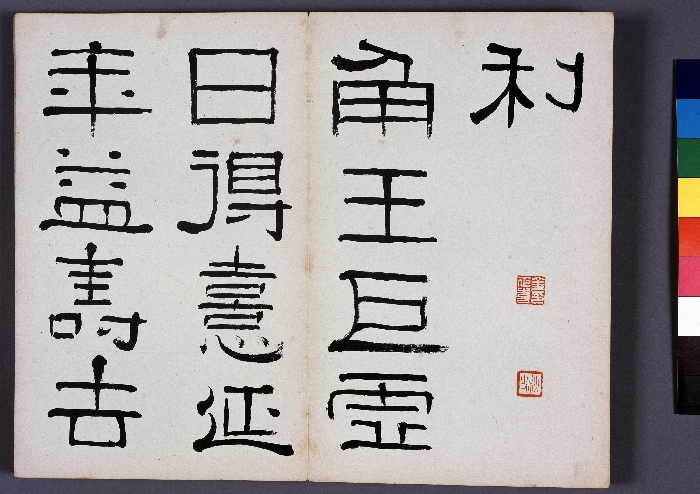 利
角王巨虛
日得憙延
年益壽去